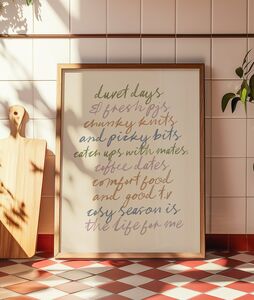 duvet days
& fresh pjs
chunky knits
and picky bits
catch ups with mates
coffee dates
comfort food
and good t.v
cosy season is
the life for me